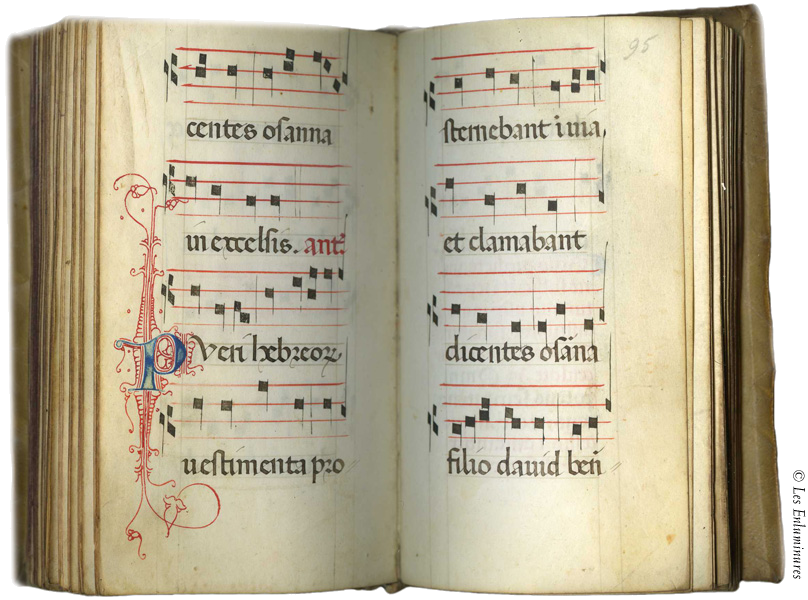 centes osanna
in excelsis. ant̃.
PVeri hebreoꝝ
uestimenta pro
95
sternebant i uia,
et clamabant
dicentes osãna
filio dauid beñ
© Les Enluminures